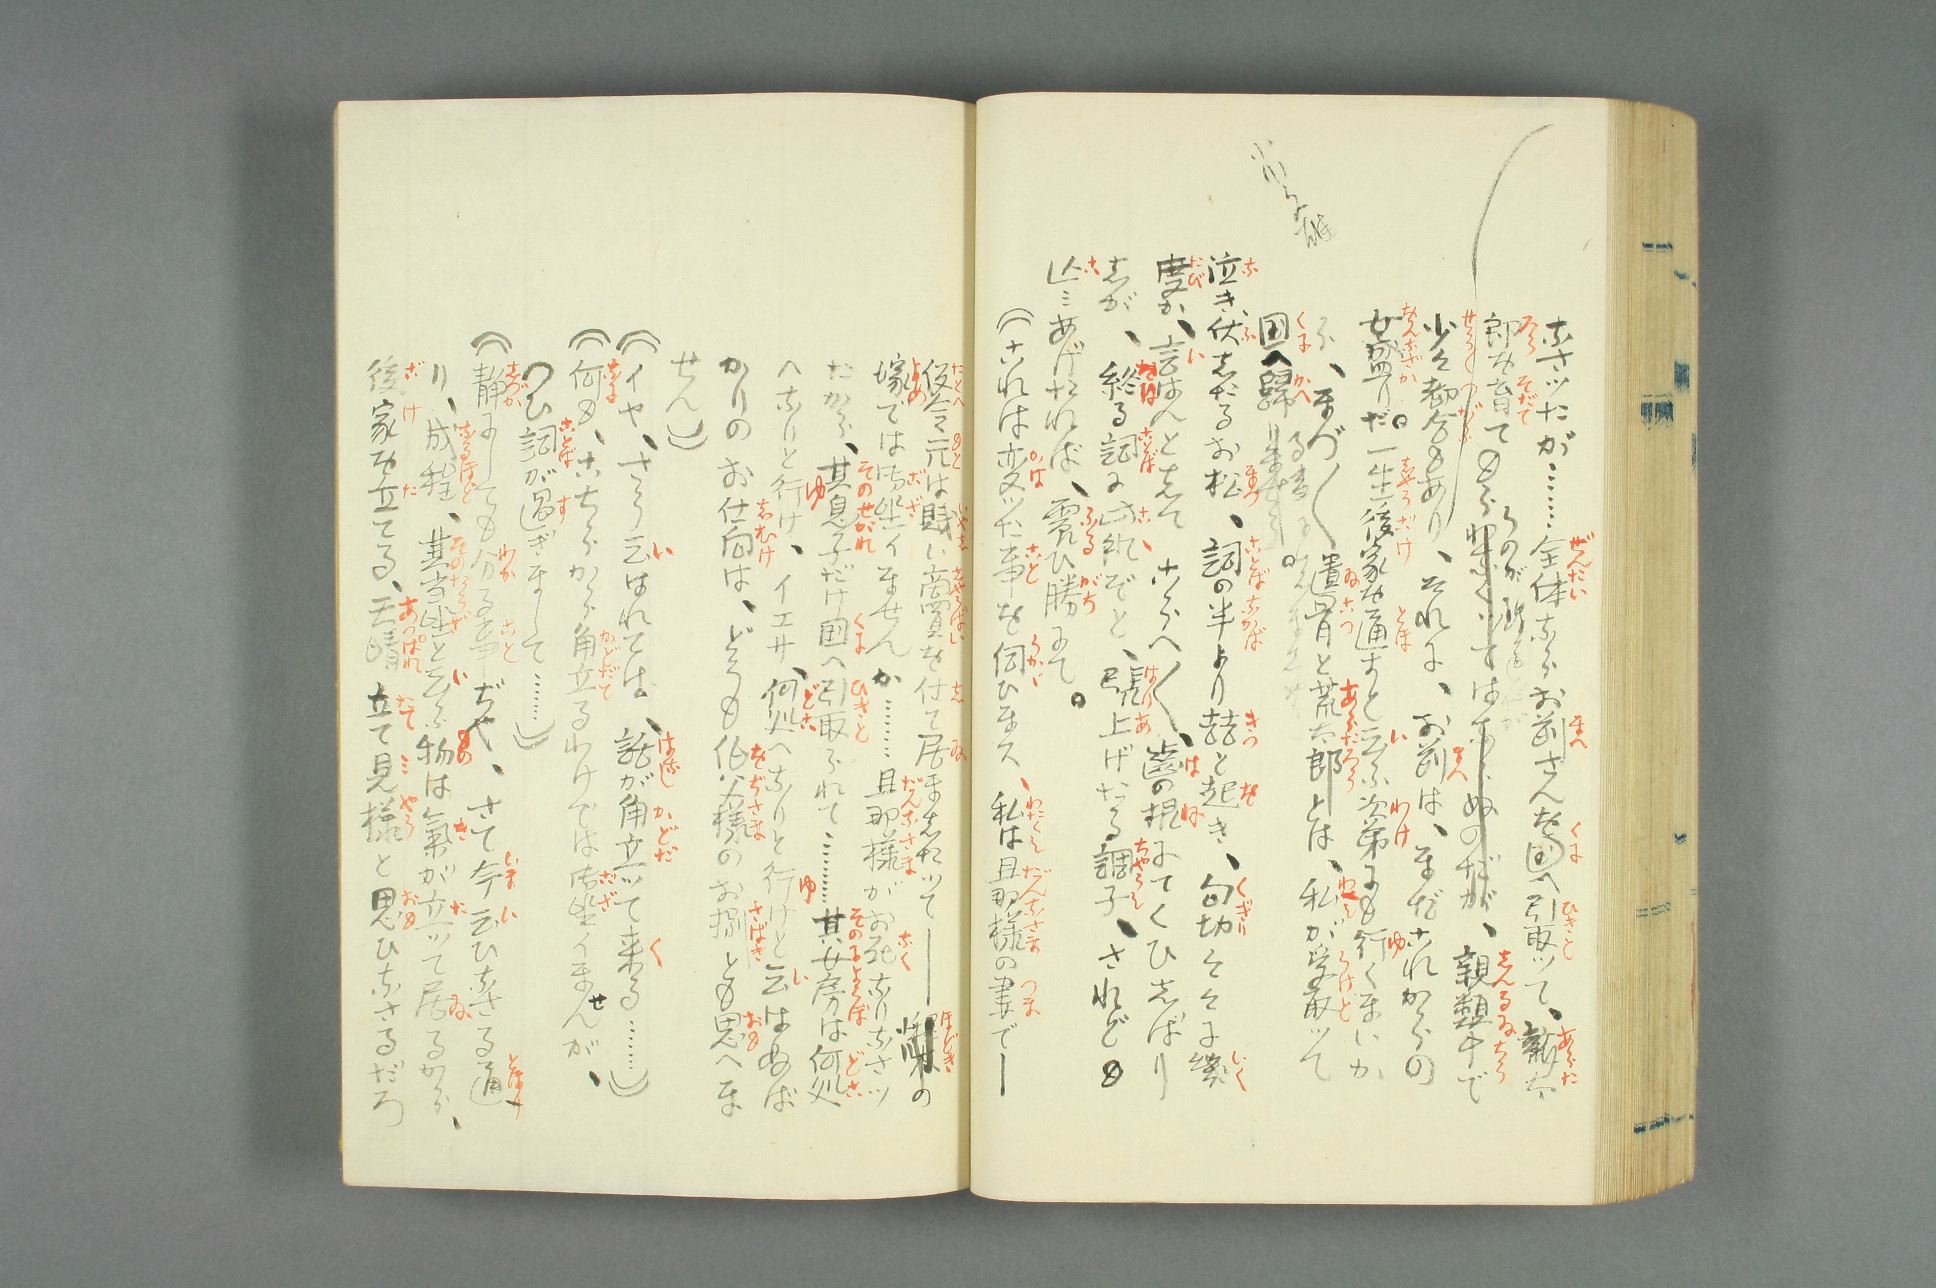 なさツたが……全体ならお前さんを国へ引取ツて、新太
郎を育てもらわなくツてはならぬのだが、親類中で
少々都合もあり、それに、お前は、まだこれからの
女盛りだ。一生後家を通すと云ふ次第にも行くまいか
ら、まづ〱遺骨と荒太郎とは、私が受取ツて
国へ歸
泣き伏したるお松、詞の半より喆と起き、句切々々に幾
度か、言はんとして、こらへ〱、歯の根にてくひしばり
しが、終る詞に此処ぞと、張上げたる調子、されども
込ミあげたれば、震ひ勝にて。
（これは変ツた事を伺ひます、私は旦那様の妻で―
仮令元は賤い商買を仕て居ましたツて――の
嫁では御坐イませんか……旦那様がお死なりなさツ
たから、其息子だけ国へ引取られて………其女房は何処
へなりと行け、イエサ、何処へなりと行けと云はぬば
かりのお仕向は、どうも伯父様のお捌とも思へま
せん）
（イヤ、さう云はれては、話が角立ツて来る……）
（何も、こちらから角立るわけでは御坐イませんが、
つひ詞が過ぎまして……）
（静にしても分る事ぢや、さて今云ひなさる通
り、成程、其当坐と云ふ物は氣が立ツて居るから、
後家を立てる、天晴立て見様と思ひなさるだろ